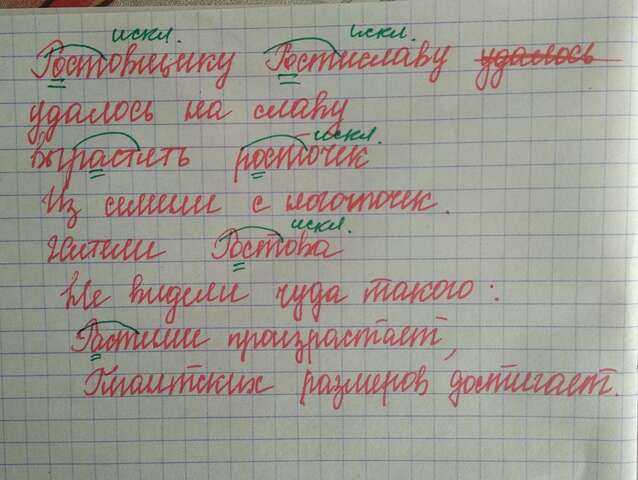 искл. искл.
Ростовщику Ростиславу удалось
удалось на славу
искл.
вырастить росточек
Из семени с ноготочек.
искл.
Жители Ростова
Не видели чуда такого:
Растими произрастает,
Гигантских размеров достигает.